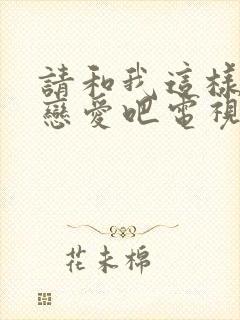 請和我這樣
戀愛吧電視
花未棉